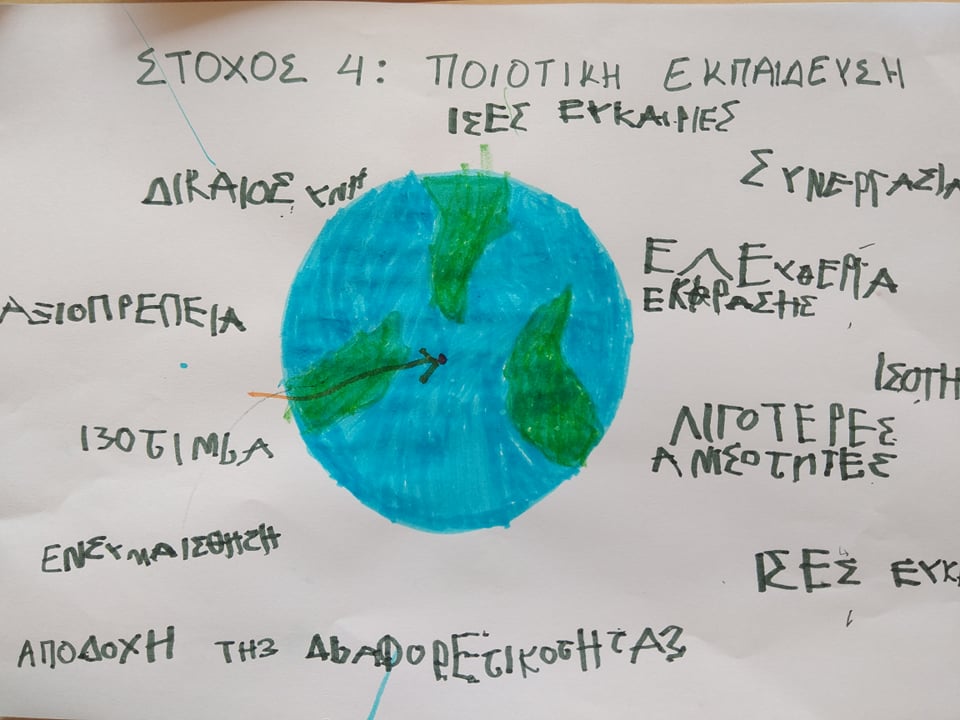 ΣΤΟΧΟΣ 4: ΠΟΙΟΤΙΚΗ ΕΚΠΑΙΔΕΥΣΗ
ΙΣΕΣ ΕΥΚΑΙΡΙΕΣ
ΔΙΚΑΙΟΣΥΝΗ
ΣΥΝΕΡΓΑΣΙΑ
ΕΛΕΥΘΕΡΙΑ
ΕΚΦΡΑΣΗΣ
ΑΞΙΟΠΡΕΠΕΙΑ
ΙΣΟΤΗ
ΛΙΓΟΤΕΡΕΣ
ΑΝΙΣΟΤΗΤΕΣ
ΙΣΟΤΙΜΙΑ
ΕΝΣΥΝΑΙΣΘΗΣΗ
ΙΣΕΣ ΕΥΚ
ΑΠΟΔΟΧΗ ΤΗΣ ΔΙΑΦΟΡΕΤΙΚΟΤΗΤΑΣ